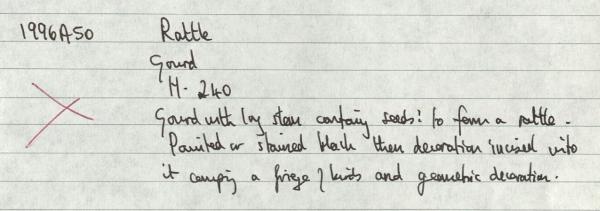 1996A50 Rattle
Gourd
H. 240
Gourd with long stem containing seeds? to form a rattle.
Painted or stained black then decoration incised into
it comprising a frieze of birds and geometric decoration.